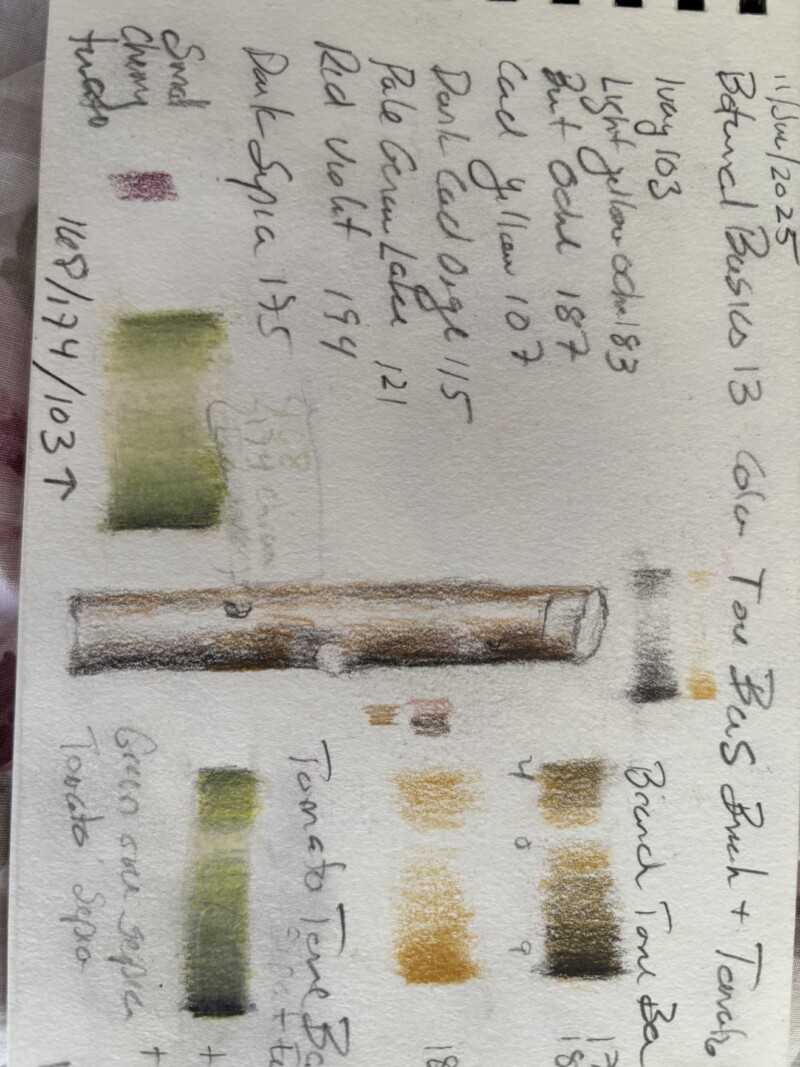 11/Jue/2025
Botanical Basics 13 Color Tone Bars Branch + Tomato
Ivory 103
Light yellow ochre 183
Burt Ochre 187
Cad yellow 107
Dark Cad Orge 115
Pale Geran Lake 121
Red Violet 194
Dark Sepia 175
Small
Cherry
tomato
168/174/103↑
168
174 Green
Branch Tone Ba
4
0
9
17
18
18
Tomato Tone Ba
Sepia + 
+
Green one sepia
Tomato Sepia
+